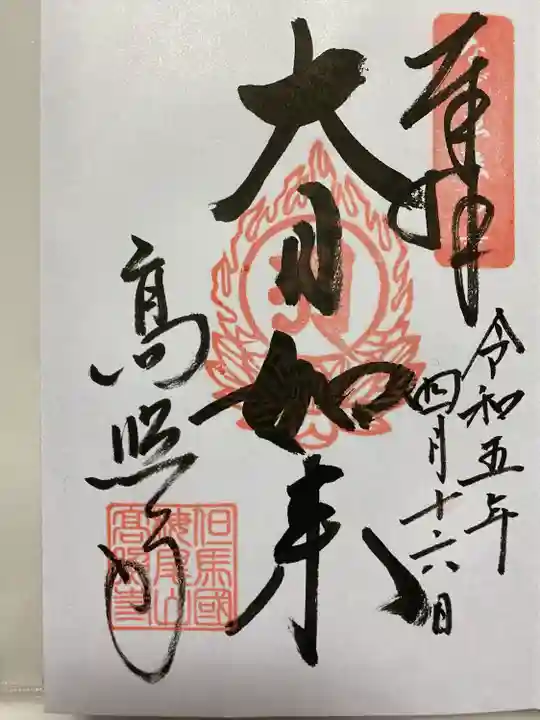 奉拝
令和五年
四月十六日
大日如来
高照寺
但馬國
高照寺